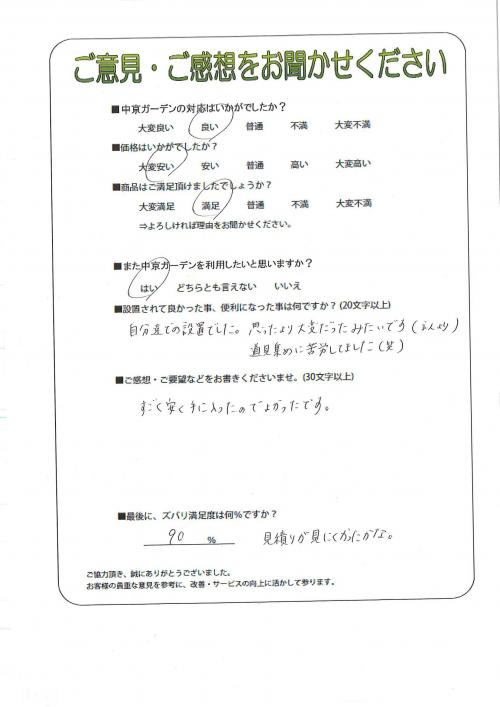 ご意見・ご感想をお聞かせください
■中京ガーデンの対応はいかがでしたか？
大変良い 良い 普通 不満 大変不満
■価格はいかがでしたか？
大変安い 安い 普通 高い 大変高い
■商品はご満足頂けましたでしょうか？
大変満足 満足 普通 不満 大変不満
⇒よろしければ理由をお聞かせください。
■また中京ガーデンを利用したいと思いますか？
はい どちらとも言えない いいえ
■設置されて良かった事、便利になった事は何ですか？(20文字以上)
自分達での設置でした。思ったより大変だったみたいです
道具集めに苦労してました(笑)
■ご感想・ご要望などをお書きくださいませ。(30文字以上)
すごく安く手に入ったのでよかったです。
■最後に、ズバリ満足度は何％ですか？
90 % 見積りが見にくかったかな。
ご協力頂き、誠にありがとうございました。
お客様の貴重な意見を参考に、改善・サービスの向上に活かして参ります。